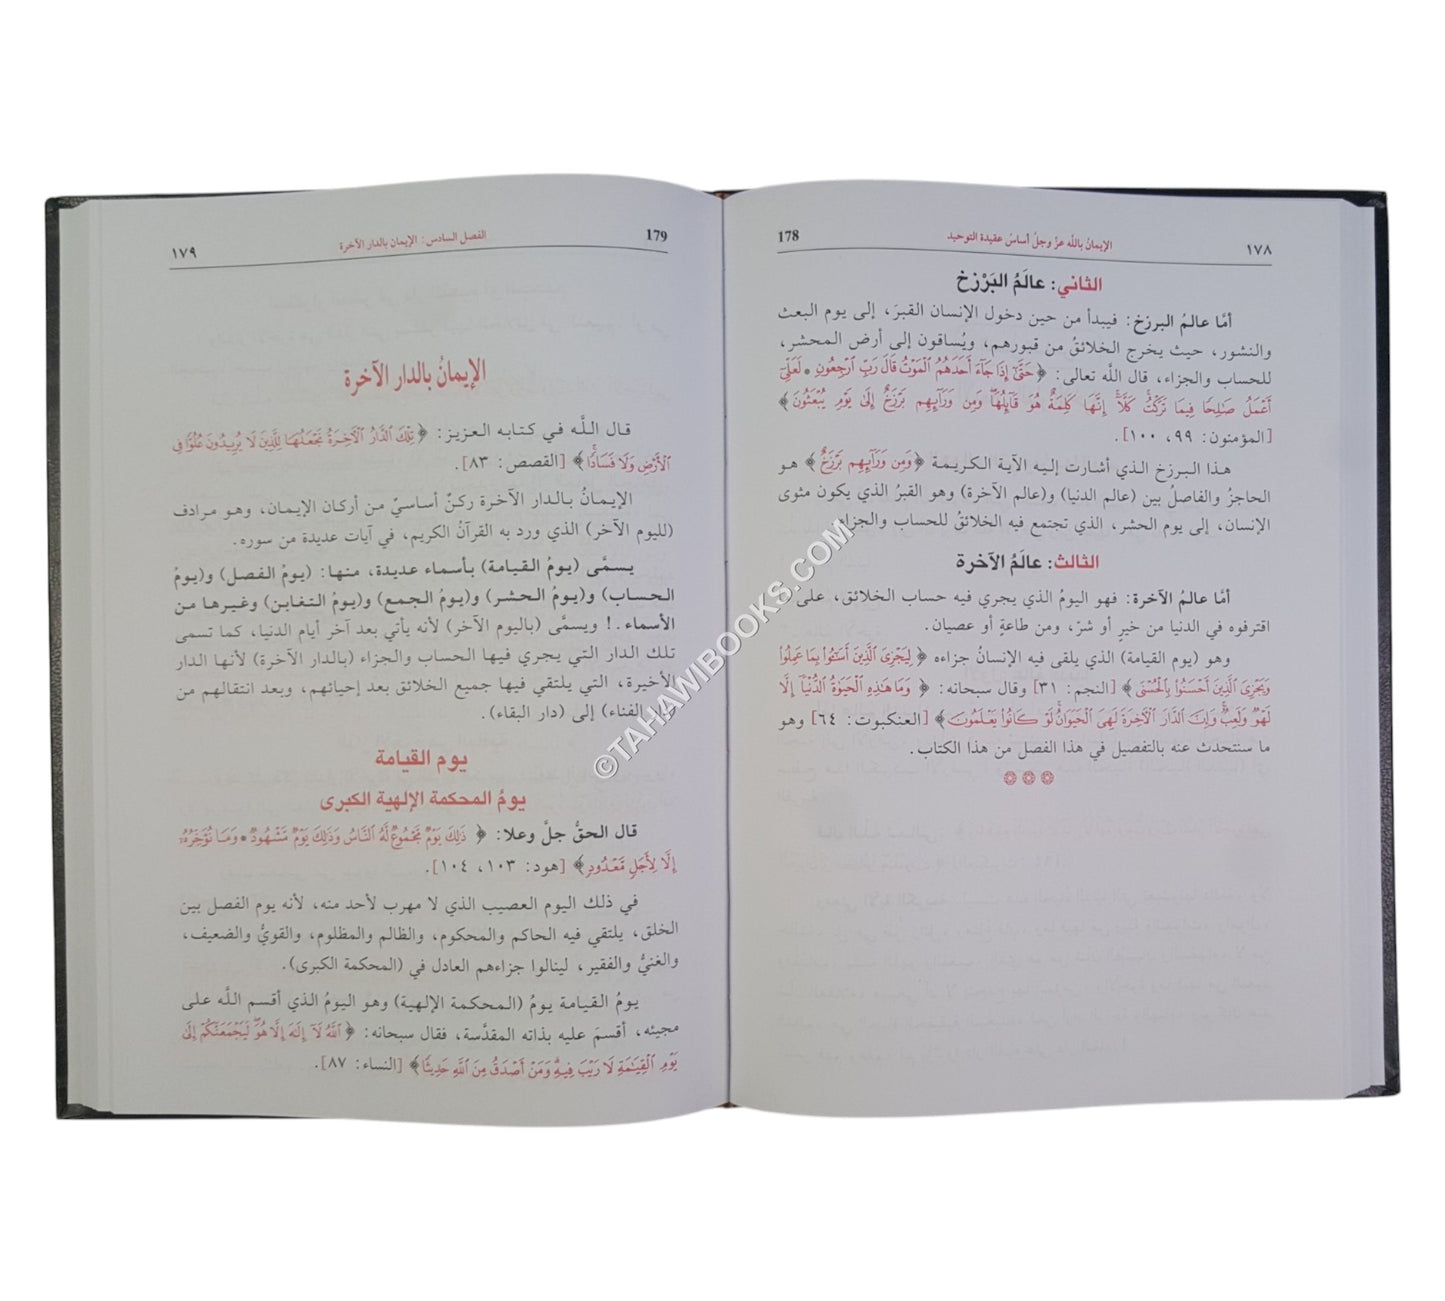 178 الإيمان بالله عزّ وجلّ أساسُ عقيدة التوحيد ١٧٨
الثاني: عالَمُ البَرْزخ
أمَّا عالمُ البرزخ: فيبدأ من حين دخول الإنسان القبرَ، إلى يوم البعث
والنشور، حيث يخرج الخلائقُ من قبورهم، ويُساقون إلى أرض المحشر،
للحساب والجزاء، قال اللَّه تعالى: ﴿حَتَّىٰٓ إِذَا جَآءَ أَحَدَهُمُ ٱلْمَوْتُ قَالَ رَبِّ ٱرْجِعُونِ • لَعَلِّىٓ
أَعْمَلُ صَٰلِحًا فِيمَا تَرَكْتُ ۚ كَلَّآ ۚ إِنَّهَا كَلِمَةٌ هُوَ قَآئِلُهَا ۖ وَمِن وَرَآئِهِم بَرْزَخٌ إِلَىٰ يَوْمِ يُبْعَثُونَ﴾
[المؤمنون: ٩٩، ١٠٠].
هذا البرزخ الذي أشارت إليه الآية الكريمة ﴿وَمِن وَرَآئِهِم بَرْزَخٌ﴾ هو
الحاجزُ والفاصلُ بين (عالم الدنيا) و(عالم الآخرة) وهو القبرُ الذي يكون مثوى
الإنسان، إلى يوم الحشر، الذي تجتمع فيه الخلائقُ للحساب والجزاء.
الثالث: عالَمُ الآخرة
أمَّا عالمُ الآخرة: فهو اليومُ الذي يجري فيه حساب الخلائق، على ما
اقترفوه في الدنيا من خيرٍ أو شرّ، ومن طاعةٍ أو عصيان.
وهو (يوم القيامة) الذي يلقى فيه الإنسانُ جزاءه ﴿لِيَجْزِىَ ٱلَّذِينَ أَسَٰٓـُٔوا۟ بِمَا عَمِلُوا۟
وَيَجْزِىَ ٱلَّذِينَ أَحْسَنُوا۟ بِٱلْحُسْنَى﴾ [النجم: ٣١] وقال سبحانه: ﴿وَمَا هَٰذِهِ ٱلْحَيَوٰةُ ٱلدُّنْيَآ إِلَّا
لَهْوٌ وَلَعِبٌ ۚ وَإِنَّ ٱلدَّارَ ٱلْـَٔاخِرَةَ لَهِىَ ٱلْحَيَوَانُ ۚ لَوْ كَانُوا۟ يَعْلَمُونَ﴾ [العنكبوت: ٦٤] وهو
ما سنتحدث عنه بالتفصيل في هذا الفصل من هذا الكتاب.
179 الفصل السادس: الإيمان بالدار الآخرة ١٧٩
الإيمانُ بالدار الآخرة
قال اللَّه في كتابه العزيز: ﴿تِلْكَ ٱلدَّارُ ٱلْـَٔاخِرَةُ نَجْعَلُهَا لِلَّذِينَ لَا يُرِيدُونَ عُلُوًّا فِى
ٱلْأَرْضِ وَلَا فَسَادًا ۚ﴾ [القصص: ٨٣].
الإيمانُ بالدار الآخرة ركنٌ أساسيّ من أركان الإيمان، وهو مرادف
(لليوم الآخر) الذي ورد به القرآنُ الكريم، في آيات عديدة من سوره.
يسمَّى (يومُ القيامة) بأسماء عديدة، منها: (يومُ الفصل) و(يومُ
الحساب) و(يومُ الحشر) و(يومُ الجمع) و(يومُ التغابن) وغيرها من
الأسماء.! ويسمَّى (باليوم الآخر) لأنه يأتي بعد آخر أيام الدنيا، كما تسمى
تلك الدار التي يجري فيها الحساب والجزاء (بالدار الآخرة) لأنها الدار
الأخيرة، التي يلتقي فيها جميع الخلائق بعد إحيائهم، وبعد انتقالهم من
(دار الفناء) إلى (دار البقاء).
يوم القيامة
يومُ المحكمة الإلهية الكبرى
قال الحقُّ جلَّ وعلا: ﴿ذَٰلِكَ يَوْمٌ مَّجْمُوعٌ لَّهُ ٱلنَّاسُ وَذَٰلِكَ يَوْمٌ مَّشْهُودٌ • وَمَا نُؤَخِّرُهُۥٓ
إِلَّا لِأَجَلٍ مَّعْدُودٍ﴾ [هود: ١٠٣، ١٠٤].
في ذلك اليوم العصيب الذي لا مهرب لأحد منه، لأنه يوم الفصل بين
الخلق، يلتقي فيه الحاكم والمحكوم، والظالم والمظلوم، والقويُّ والضعيف،
والغنيُّ والفقير، لينالوا جزاءهم العادل في (المحكمة الكبرى).
يومُ القيامة يومُ (المحكمة الإلهية) وهو اليومُ الذي أقسم اللَّه على
مجيئه، أقسمَ عليه بذاته المقدَّسة، فقال سبحانه: ﴿ٱللَّهُ لَآ إِلَٰهَ إِلَّا هُوَ ۚ لَيَجْمَعَنَّكُمْ إِلَىٰ
يَوْمِ ٱلْقِيَٰمَةِ لَا رَيْبَ فِيهِ ۗ وَمَنْ أَصْدَقُ مِنَ ٱللَّهِ حَدِيثًا﴾ [النساء: ٨٧].
©TAHAWIBOOKS.COM